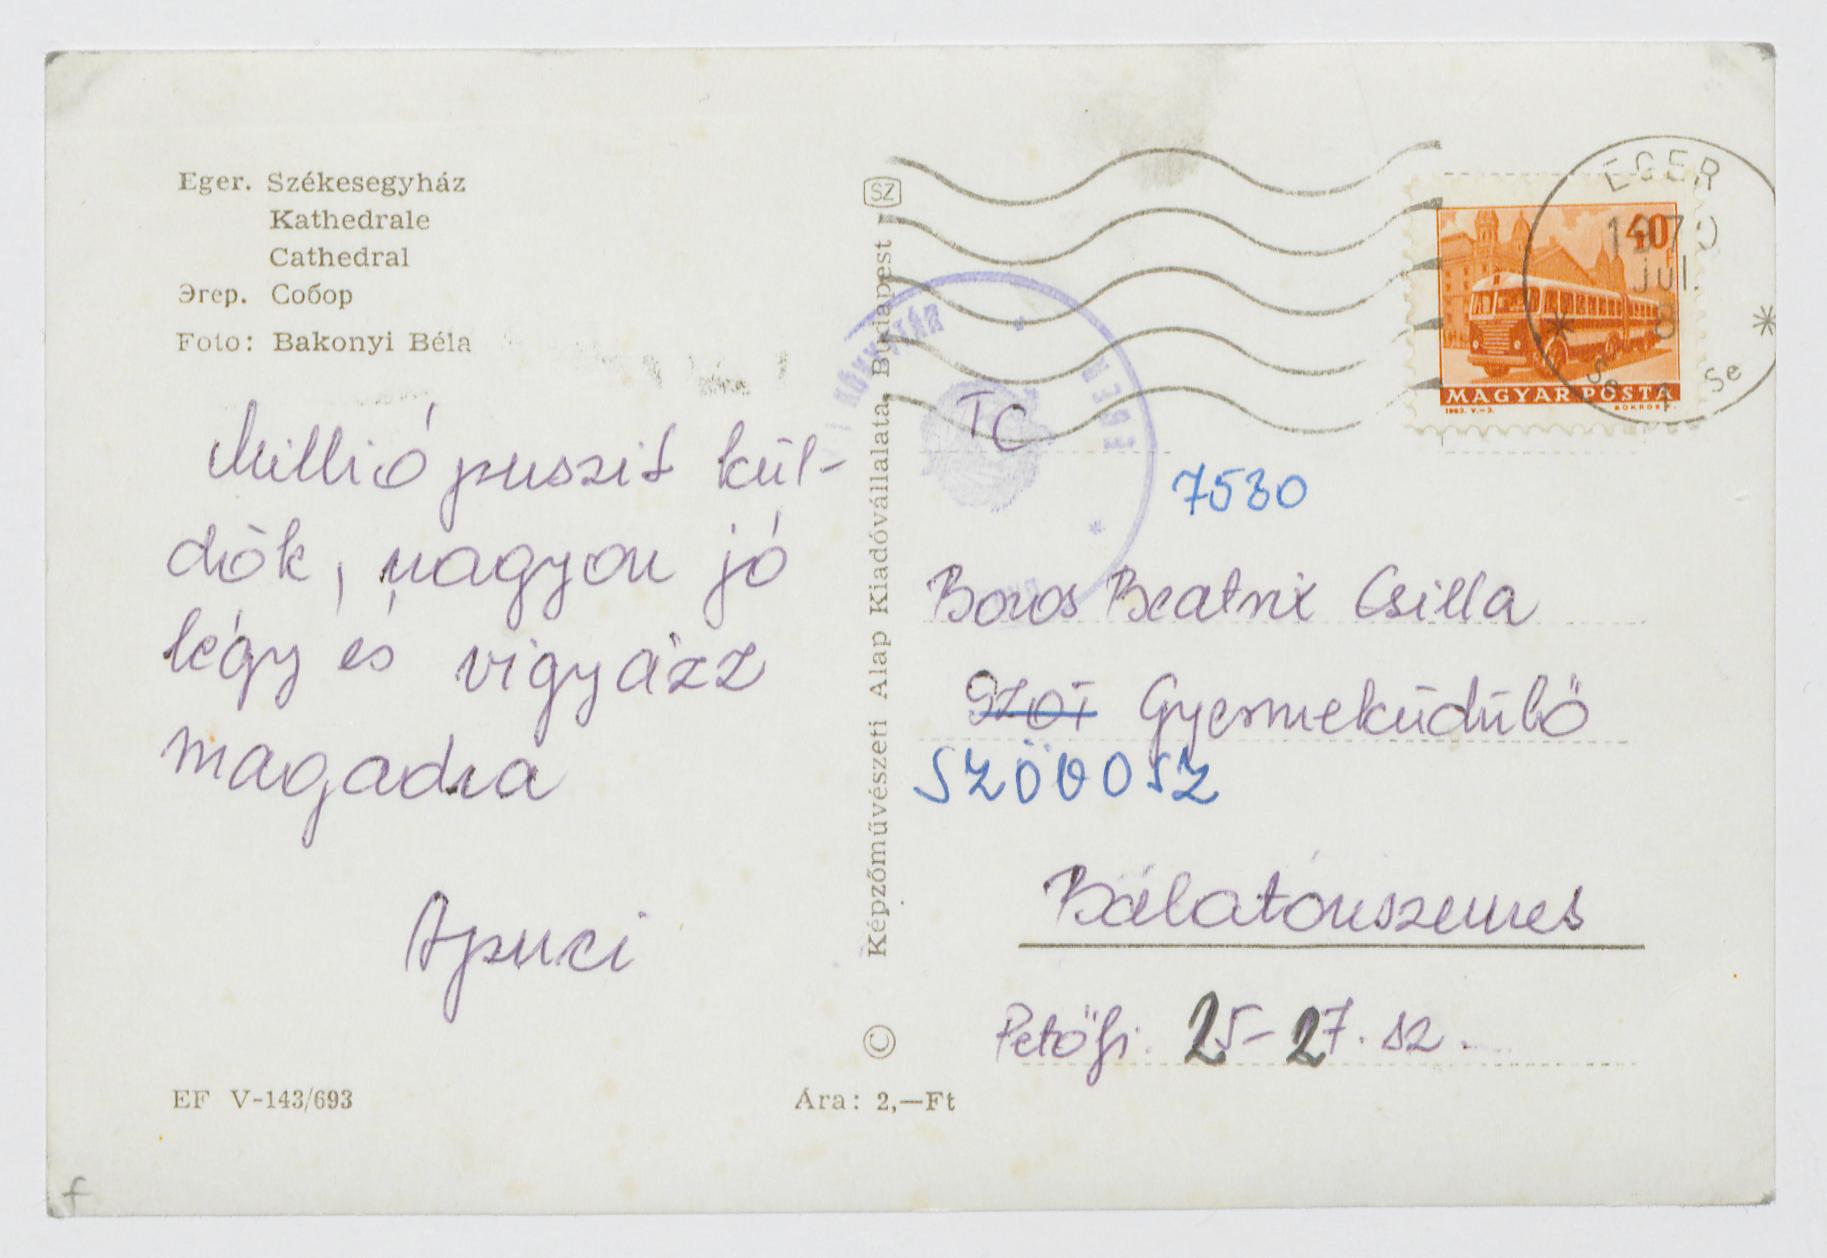 Eger. Székesegyház
Kathedrale
Cathedral
Эгер. Собор
Foto: Bakonyi Béla
Millió puszit kül-
dök, nagyon jó
légy és vigyázz
magadra
Apuci
EF V-143/693
Ára: 2,—Ft
SZ
Képzőművészeti Alap Kiadóvállalata, Budapest
©
KÖNYVTÁR
MEGYE
EGER
1970
JUL.
8
40
MAGYAR POSTA
TC
7530
Boros Beatrix Csilla
SZOT Gyermeküdülő
SZÖVOSZ
Balatonszemes
Petőfi. 25-27. sz.
f